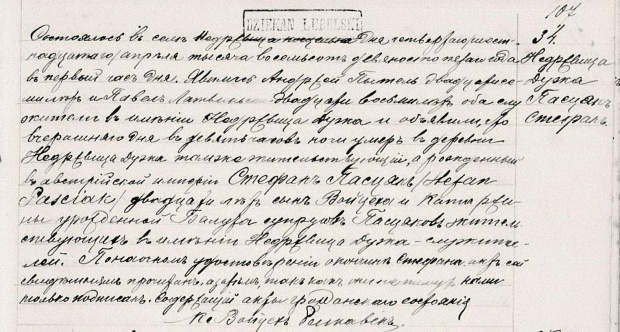 DZIEKAN LUBELSKI
107
34.
Недржвица
Дужа
Пасцякъ
Стефанъ.
Состоялось въ селѣ Недржвица Дня четвертаго шест-
надцатаго/апрѣля тысяча восемьсотъ девяносто года
въ первомъ часъ дня. Явились Андрей Пытель двадцати се-
ми лѣтъ и Павелъ двадцати восьми лѣтъ оба слу
жители въ имѣніи Недржвица Дужа и объявили, что
вчерашняго дня въ девять часовъ ночи умеръ въ деревни
Недржвица Дужа тамже жительствующій, а рожденный
въ австрійской имперіи Стефанъ Пасцякъ /Stefan
Paściak/ двадцати лѣтъ сынъ Войцеха и Катаржи-
ны урожденной супруговъ Пасцяковъ жител
ствующихъ въ имѣніи Недржвица Дужа - служите-
лей. По настоящемъ удостовѣреніи о кончинѣ Стефана, актъ сей
свидѣтелямъ прочитанъ, а затѣмъ, такъ какъ нами
только подписанъ. Содержащій акты гражданскаго состоянія
Кс. Войцехъ